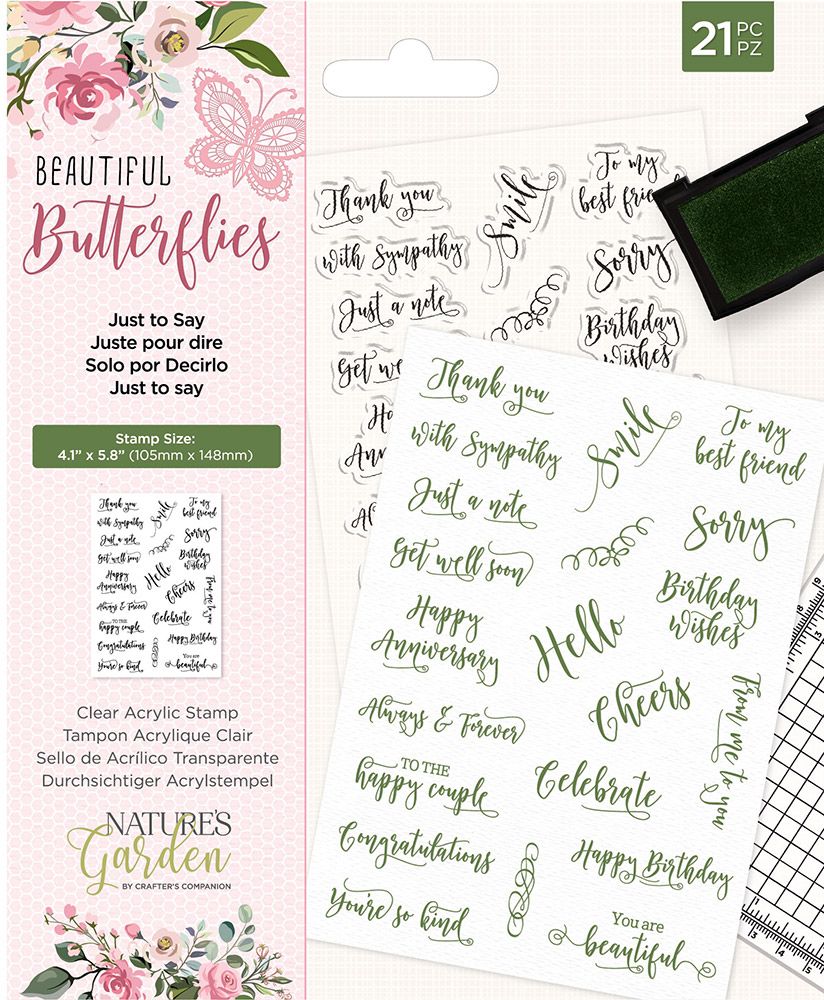 21 PC
PZ
BEAUTIFUL
Butterflies
Just to Say
Juste pour dire
Solo por Decirlo
Just to say
Stamp Size:
4.1" x 5.8" (105mm x 148mm)
Thank you
with Sympathy
Just a note
Get well soon
Happy
Anniversary
Always & Forever
TO THE
happy couple
Congratulations
You're so kind
Smile
Hello
Cheers
Celebrate
To my
best friend
Sorry
Birthday
Wishes
From me to you
Happy Birthday
You are
beautiful
Clear Acrylic Stamp
Tampon Acrylique Clair
Sello de Acrílico Transparente
Durchsichtiger Acrylstempel
NATURE'S
Garden
BY CRAFTER'S COMPANION
Thank you
with Sympathy
Just a note
Get we
Ha
Ann
Al
Smile
To my
best frien
Sorry
Birthday
Wishes
Thank you
with Sympathy
Just a note
Get well soon
Happy
Anniversary
Always & Forever
TO THE
happy couple
Congratulations
You're so kind
Smile
Hello
Cheers
Celebrate
To my
best friend
Sorry
Birthday
Wishes
From me to you
Happy Birthday
You are
beautiful
19
18
13
14
15